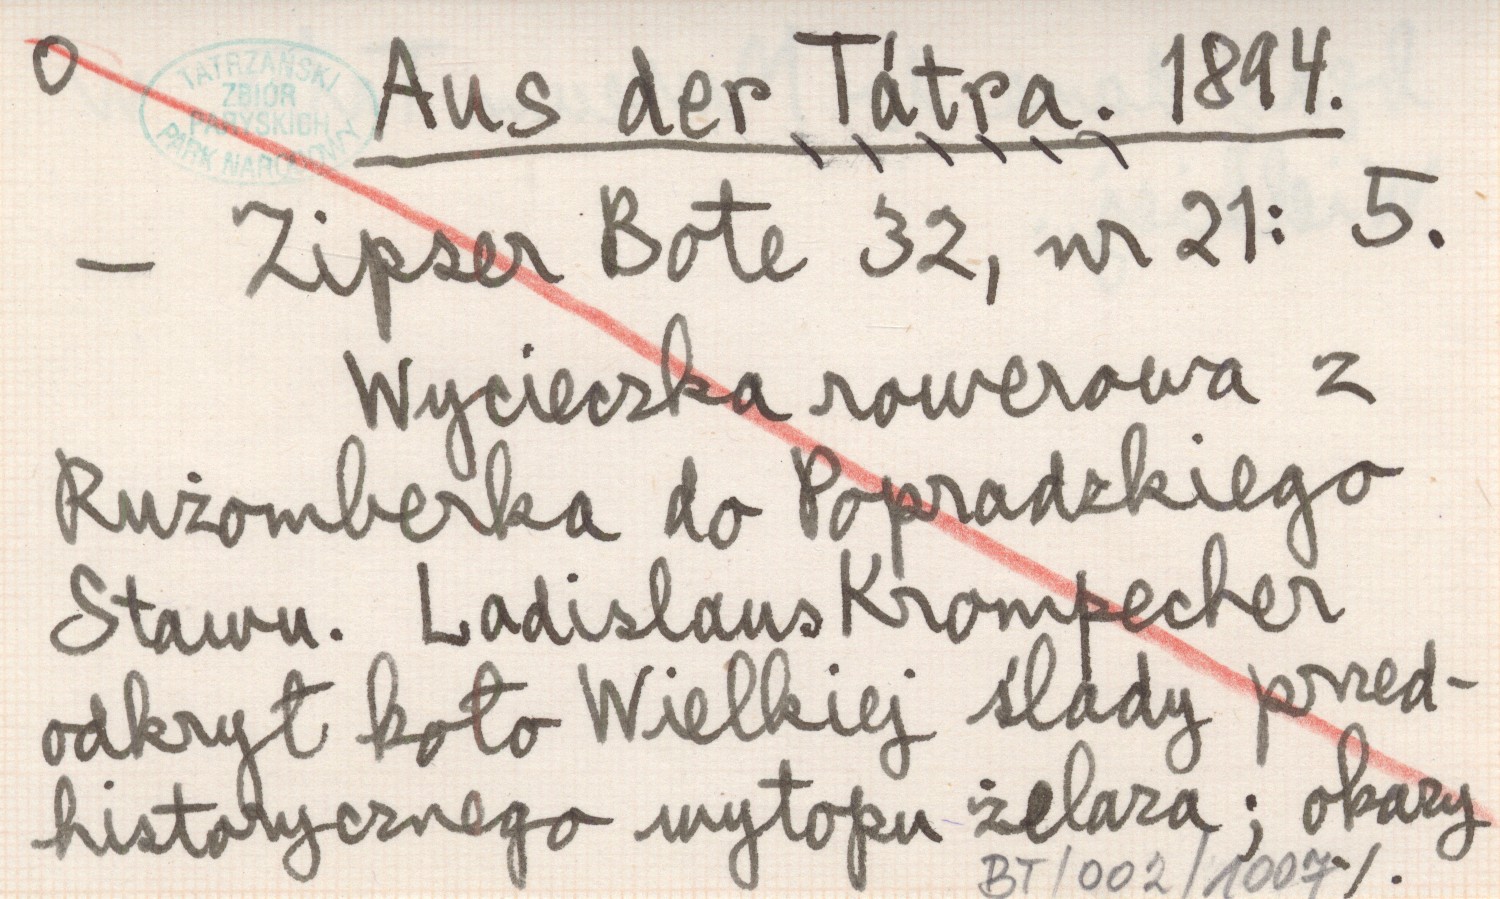 O
TATRZAŃSKI
ZBIÓR
PARYSKICH
PARK NARODOWY
Aus der Tátra. 1894.
— Zipser Bote 32, nr 21: 5.
Wycieczka rowerowa z
Rużomberka do Popradzkiego
Stawu. Ladislaus Krompecher
odkrył koło Wielkiej ślady przed-
historycznego wytopu żelaza; okazy
BT/002/1007 ·/.